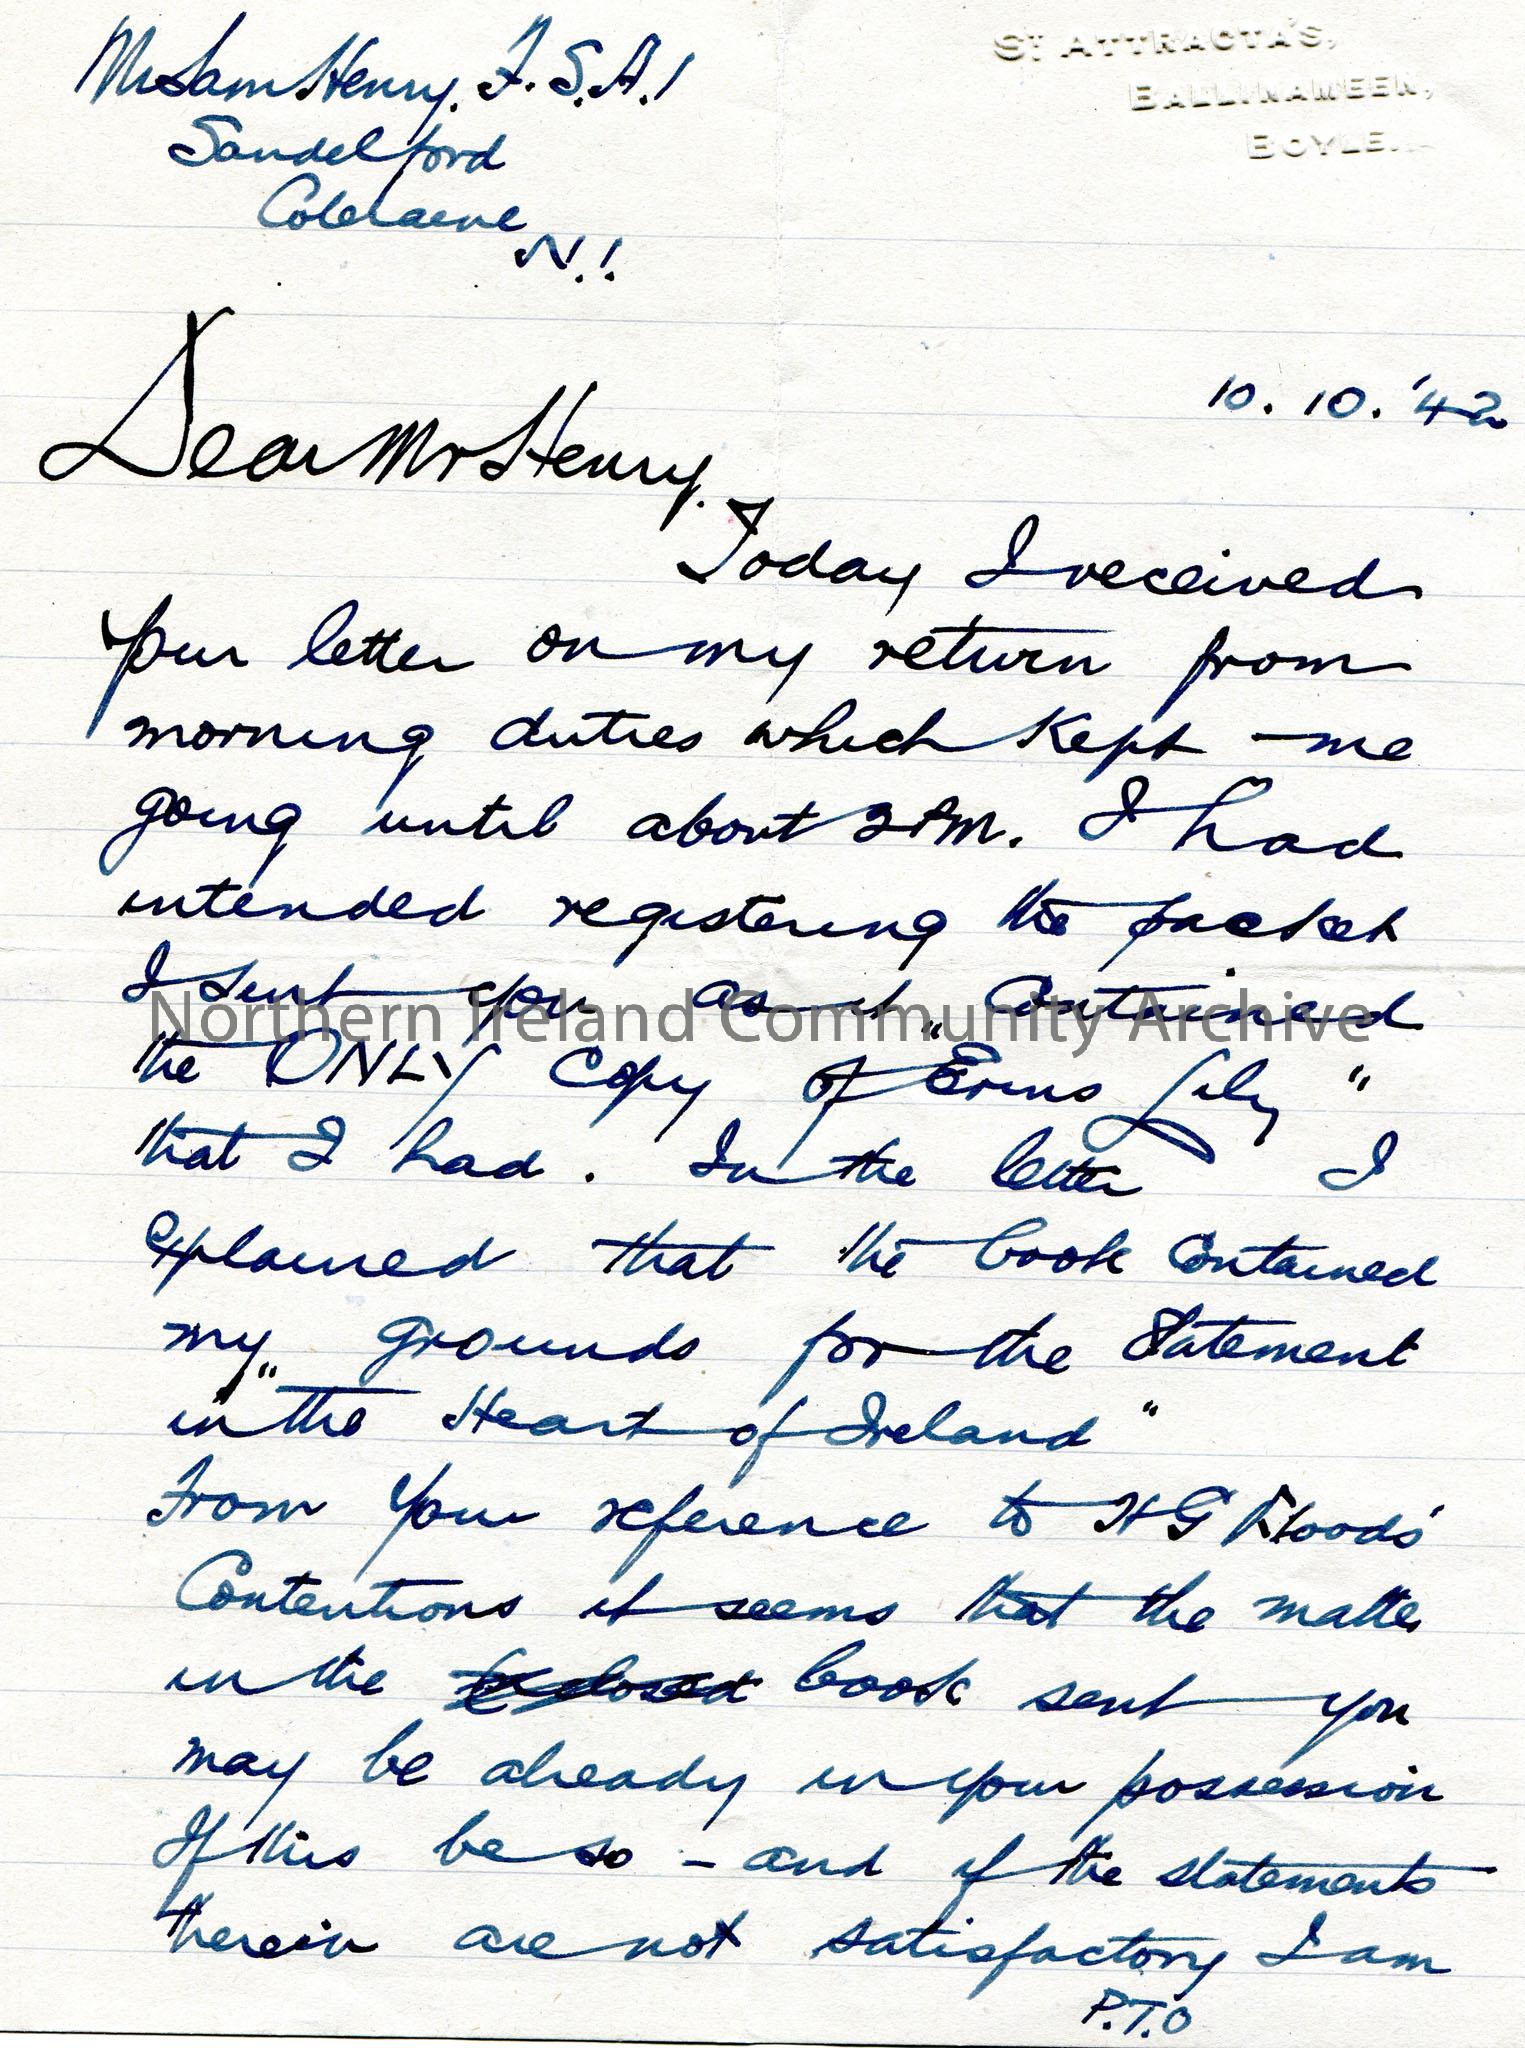 Mr Sam Henry. F.S.A.I
Sandelford
Coleraine
N.I.
ST ATTRACTA'S,
BALLINAMEEN,
BOYLE.
10.10.'42
Dear Mr Henry.
Today I received
your letter on my return from
morning duties which kept me
going until about 2 PM. I had
intended registering the packet
I sent you as it contained
the ONLY copy of "Erins Lily"
that I had. In the letter I
explained that the book contained
my grounds for the statement
in "the Heart of Ireland"
From your reference to H G Floods'
Contentions it seems that the matter
in the enclosed book sent you
may be already in your possession
If this be so - and if the statements
therein are not satisfactory I am
P.T.O
Northern Ireland Community Archive